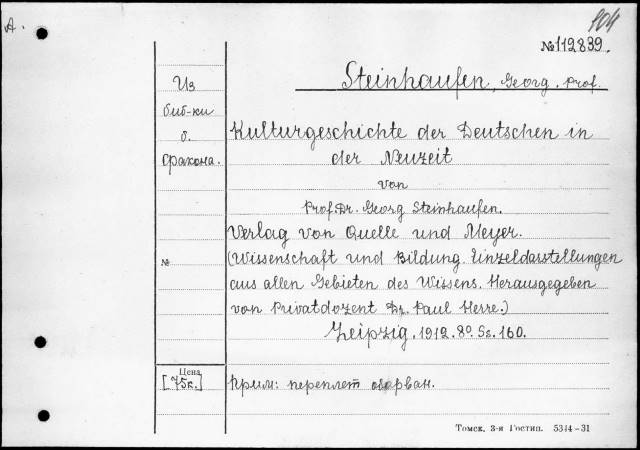 A.
104
№ 112839.
Steinhaufen, Georg, Prof.
Из
биб-ки
б.
Фракона.
Kulturgeschichte der Deutschen in
der Neuzeit
von
Prof. Dr. Georg Steinhaufen.
Verlag von Quelle und Meyer.
(Wissenschaft und Bildung. Einzeldarstellungen
№
aus allen Gebieten des Wissens. Herausgegeben
von Privatdozent Dr. Paul Herre.)
Leipzig. 1912. 8º. Ss. 160.
Цена
[75к.]
Прим: переплет оборван.
Томск. 3-я Гостип. 5344-31